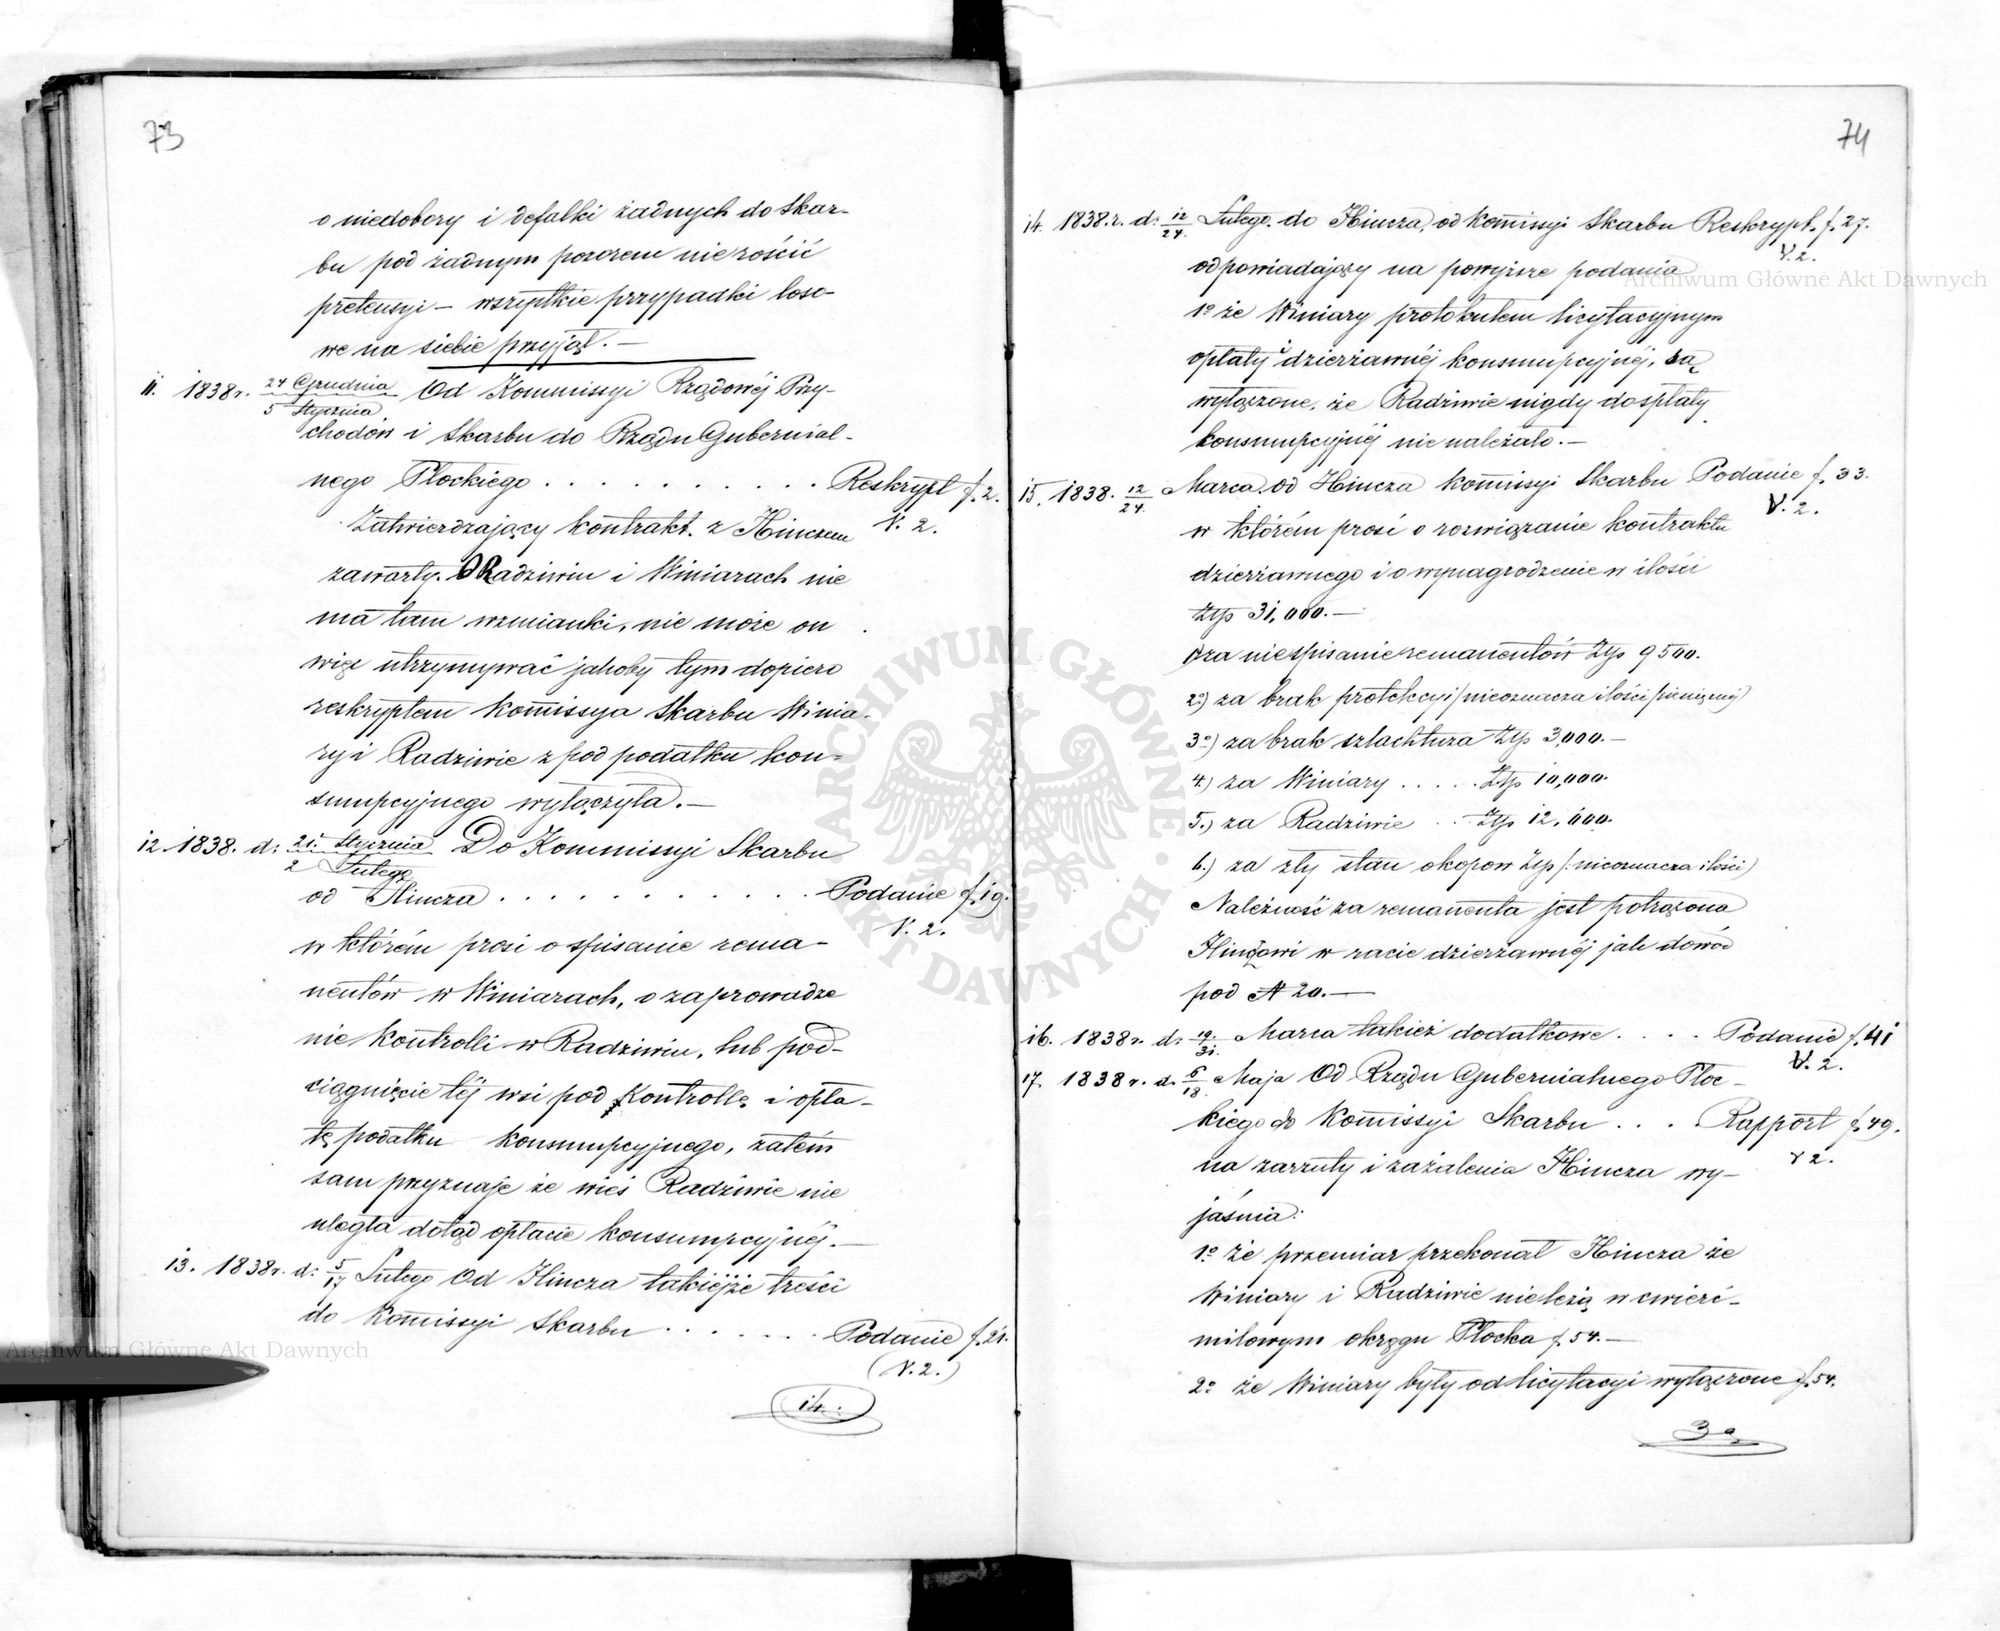 73
o niedobory i defalki żadnych do Skar-
bu pod żadnym pozorem nie rościć
pretensyi – wszystkie przypadki loso-
we na siebie przyjął. —
11. 1838 r. 24 Grudnia / 5 Stycznia Od Kommissyi Rządowéj Przy-
chodów i Skarbu do Rządu Gubernial-
nego Płockiego . . . . . . . . . . Reskrypt f. 2.
Zatwierdzający kontrakt z Hinczem V. 2.
zawarty. O Radziwiu i Winiarach nie
ma tam wzmianki, nie może on
więc utrzymywać jakoby tym dopiero
reskryptem Kommissya Skarbu Winia-
ry i Radziwie z pod podatku kon-
sumpcyjnego wyłączyła. —
12. 1838. d: 21 Stycznia / 2 Lutego Do Kommissyi Skarbu
od Hincza . . . . . . . . . . . . Podanie f. 19.
w którém prosi o spisanie rema- V. 2.
nentów w Winiarach, o zaprowadze
nie kontrolli w Radziwiu, lub pod-
ciągnięcie téj wsi pod Kontrollę i opła-
tę podatku konsumpcyjnego, zatém
sam przyznaje że wieś Radziwie nie
uległa dotąd opłacie konsumpcyjnéj. —
13. 1838 r. d: 5/17 Lutego Od Hincza takiéjże treści
do Kommissyi Skarbu . . . . . . . Podanie f. 21.
(V. 2.)
14.
74
14. 1838. r. d: 12/24. Lutego. do Hincza, od Kommissyi Skarbu Reskrypt. f. 27.
V. 2.
odpowiadający na powyższe podania
1º że Winiary protokułem licytacyjnym
opłaty i dzierżawnéj konsumpcyjnéj, są
wyłączone, że Radziwie nigdy do opłaty
konsumpcyjnéj nie należało. —
15. 1838. 12/24. Marca. od Hincza Kommissyi Skarbu Podanie f. 33.
V. 2.
w którém prosi o rozwiązanie kontraktu
dzierżawnego i o wynagrodzenie w ilości
Złp 31,000. —
za niespisanie remanentów Złp 9500.
2º) za brak protekcyi /nieoznacza ilości pieniężnéj)
3º) za brak szlachtuza Złp 3,000. —
4.) za Winiary . . . . . Złp 10,000.
5.) za Radziwie . . Złp 12,000.
6.) za zły stan okopów Złp /: nieoznacza ilości)
Należność za remanenta jest potrącona
Hinczowi w racie dzierżawnéj jak dowód
pod N 20. —
16. 1838 r. d: 19/31. Marca takież dodatkowe . . . . Podanie f. 41
V. 2.
17. 1838 r. d. 6/18. Maja Od Rządu Gubernialnego Płoc-
kiego do Kommissyi Skarbu . . . . Rapport f. 49.
V 2.
na zarzuty i zażalenia Hincza wy-
jaśnia:
1º że przemiar przekonał Hincza że
Winiary i Radziwie nie leżą w ćwierć-
milowym okręgu Płocka f. 54. —
2º że Winiary były od licytacyi wyłączone f. 54.
3º
Archiwum Główne Akt Dawnych
Archiwum Główne Akt Dawnych
ARCHIWUM GŁÓWNE AKT DAWNYCH